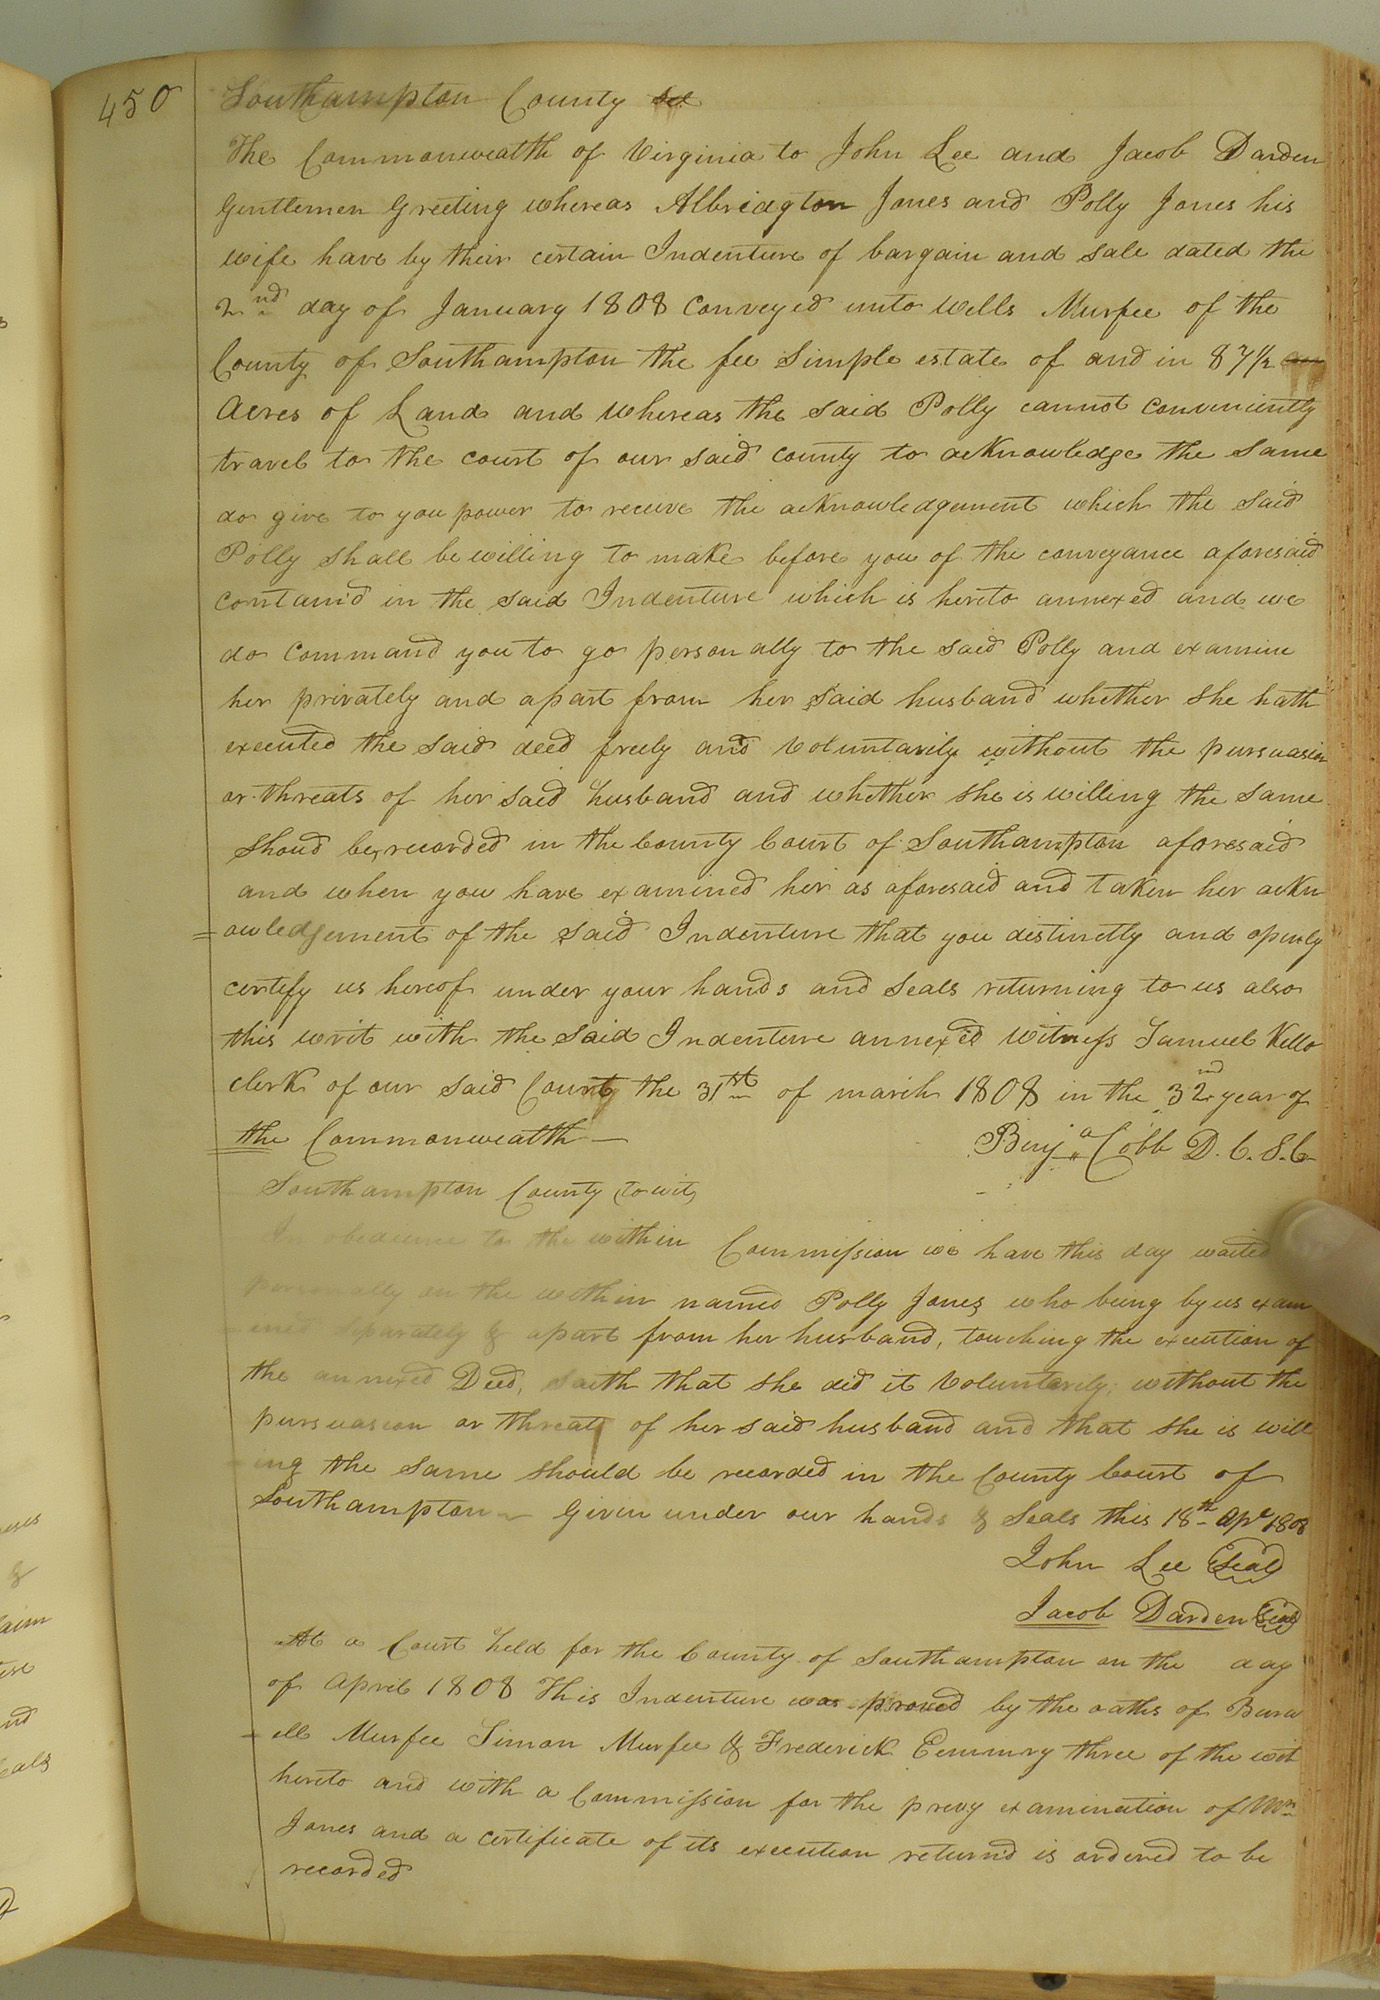 450
Southampton County Sct
The Commonwealth of Virginia to John Lee and Jacob Darden
Gentlemen Greeting whereas Albridgton Jones and Polly Jones his
wife have by their certain Indenture of bargain and sale dated the
2nd day of January 1808 Conveyed unto Wells Murfee of the
County of Southampton the fee Simple estate of and in 87½
Acres of Land and Whereas the said Polly cannot conveniently
travel to the court of our said county to acknowledge the same
do give to you power to receive the acknowledgement which the said
Polly shall be willing to make before you of the conveyance aforesaid
contain'd in the said Indenture which is hereto annexed and we
do command you to go personally to the said Polly and examine
her privately and apart from her said husband whether she hath
executed the said deed freely and voluntarily without the pursuasion
or threats of her said husband and whether she is willing the same
shoud be recorded in the County Court of Southampton aforesaid
and when you have examined her as aforesaid and taken her ackn
=owledgement of the said Indenture that you distinctly and openly
certify us hereof under your hands and seals returning to us also
this writ with the said Indenture annex'd Witness Samuel Kello
clerk of our said Court the 31st of march 1808 in the 32nd year of
the Commonwealth —
Benja Cobb D. C. S. C
Southampton County to wit,
In obedience to the within Commission we have this day waited
personally on the within named Polly Jones who being by us exam
ined separately & apart from her husband, touching the execution of
the annexed Deed, saith that she did it Voluntarily, without the
pursuasion or threats of her said husband and that she is will
-ing the same should be recorded in the County Court of
Southampton - Given under our hands & Seals this 18th Apl 1808
John Lee (Seal)
Jacob Darden (Seal)
At a Court held for the County of Southampton on the day
of April 1808 This Indenture was proved by the oaths of Burw
-ell Murfee Simon Murfee & Frederick Cemmry three of the wit
hereto and with a Commission for the prevy examination of Mrs
Jones and a certificate of its execution return'd is ordered to be
recorded